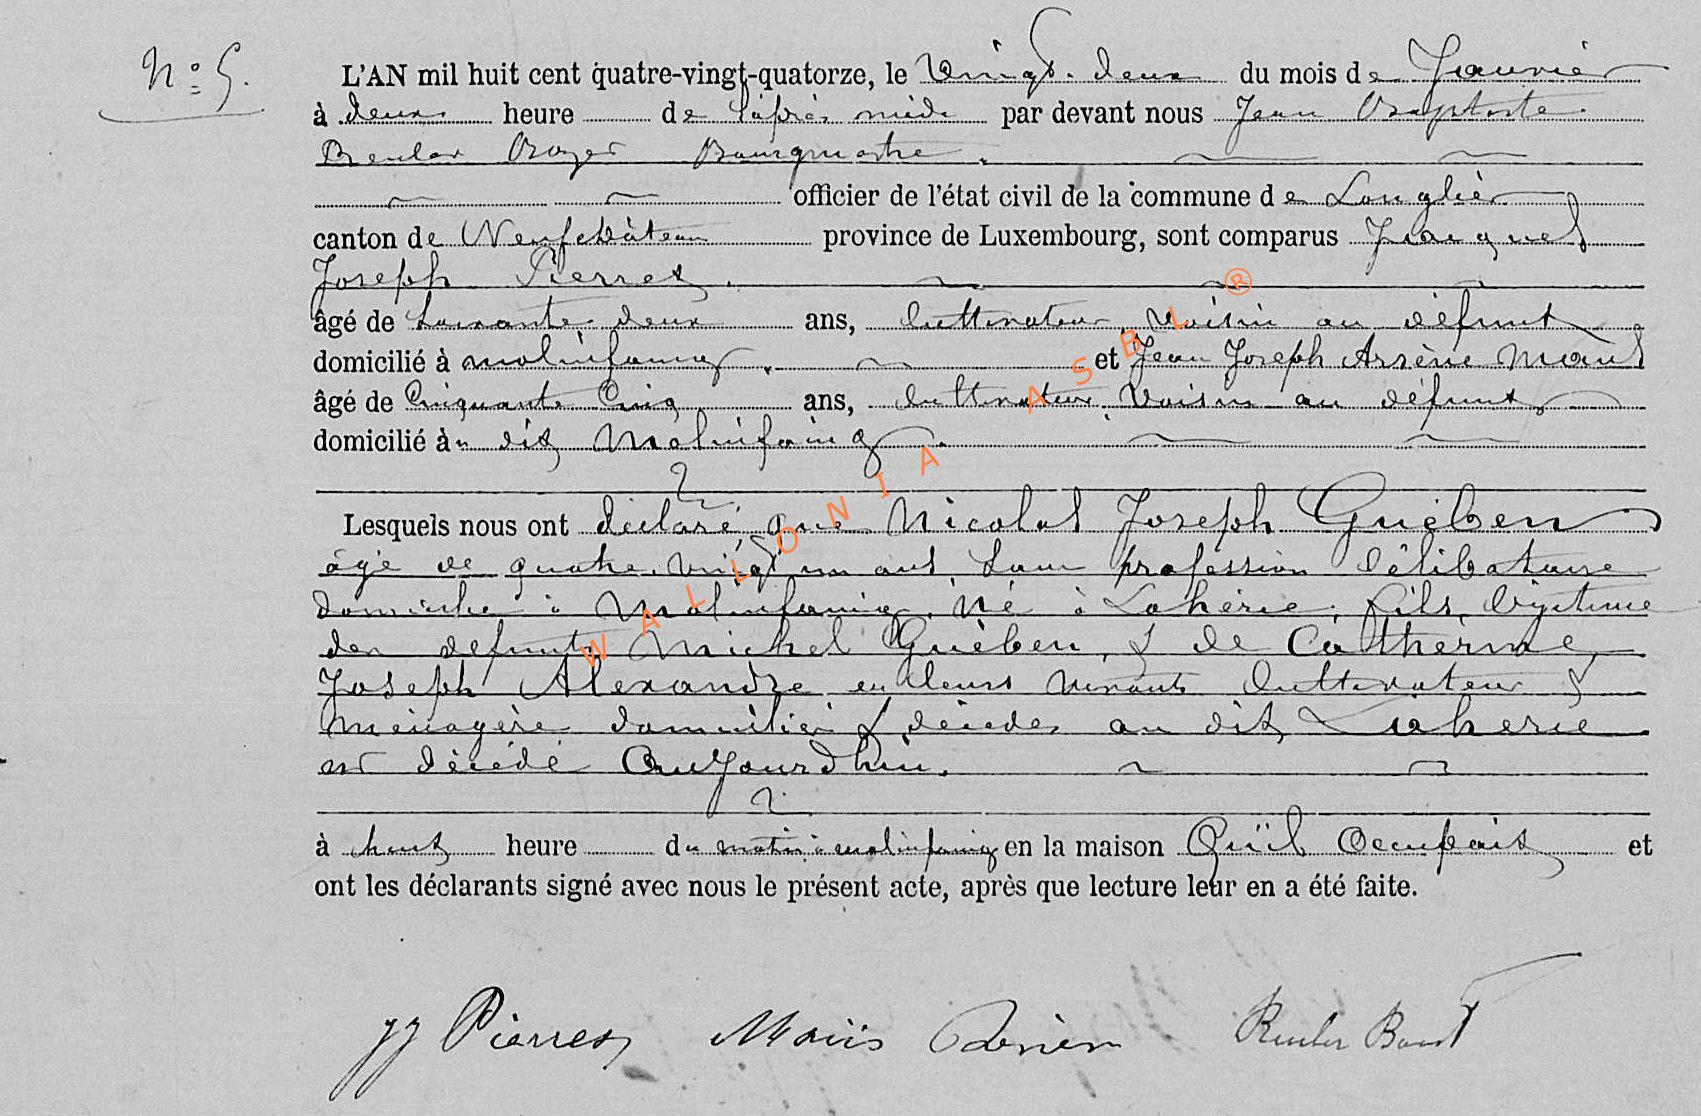 N° 5.
L'AN mil huit cent quatre-vingt-quatorze, le Vingt-deux du mois de Janvier
à deux heure de l'après midi par devant nous Jean Baptiste
Reuler Bourgmestre
officier de l'état civil de la commune de Longlier
canton de Neufchâteau province de Luxembourg, sont comparus Jacques
Joseph Pierret
âgé de Soixante deux ans, Cultivateur, Voisin au défunt
domicilié à molinfaing. et Jean Joseph Arsène Maus
âgé de Cinquante Cinq ans, Cultivateur, Voisin au défunt
domicilié à dit Molinfaing.
Lesquels nous ont déclaré que Nicolas Joseph Guèben
âgé de quatre-vingt un ans Sans profession Célibataire
domicilié à Molinfaing. Né à Lahérie. fils légitime
des defunts Michel Guèben, & de Cathérine
Joseph Alexandre en leurs vivants Cultivateur &
Ménagère domiciliés & décédés au dit Laherie
est décédé Aujourdhui.
à huit heure du matin à molinfaing en la maison Qu'il Occupait et
ont les déclarants signé avec nous le présent acte, après que lecture leur en a été faite.
JJ Pierret Maus Reuler
WALLONIA ASBL ®